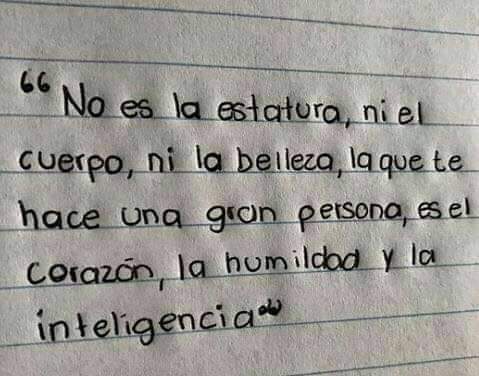 “No es la estatura, ni el
cuerpo, ni la belleza, la que te
hace una gran persona, es el
corazón, la humildad y la
inteligencia”